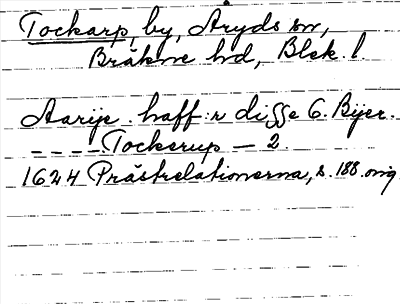 Tockarp, by, Åryds sn,
Bräkne hd, Blek. l.
Aarije haffr disse 6. Bÿer.
– – – – Tockerup – 2.
1624 Prästrelationerna, s. 188. orig